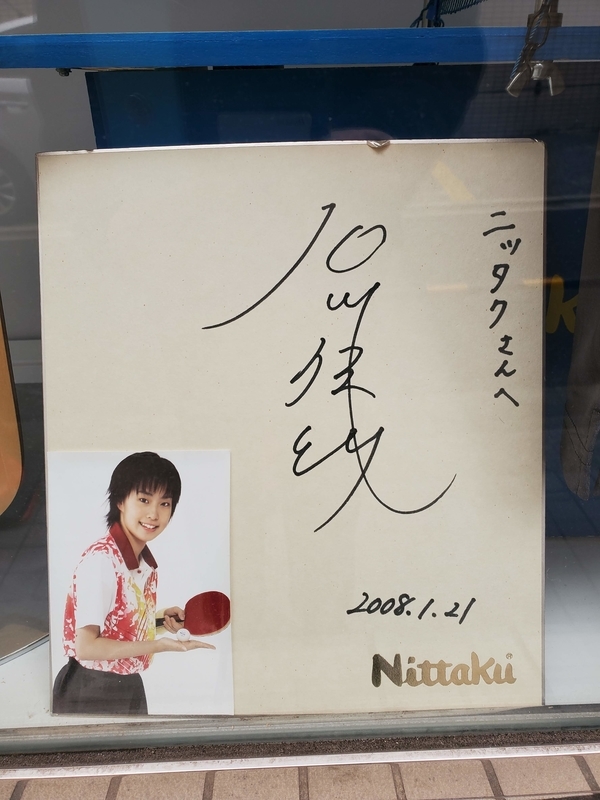 ニッタクさんへ
石川佳純
2008.1.21
Nittaku®